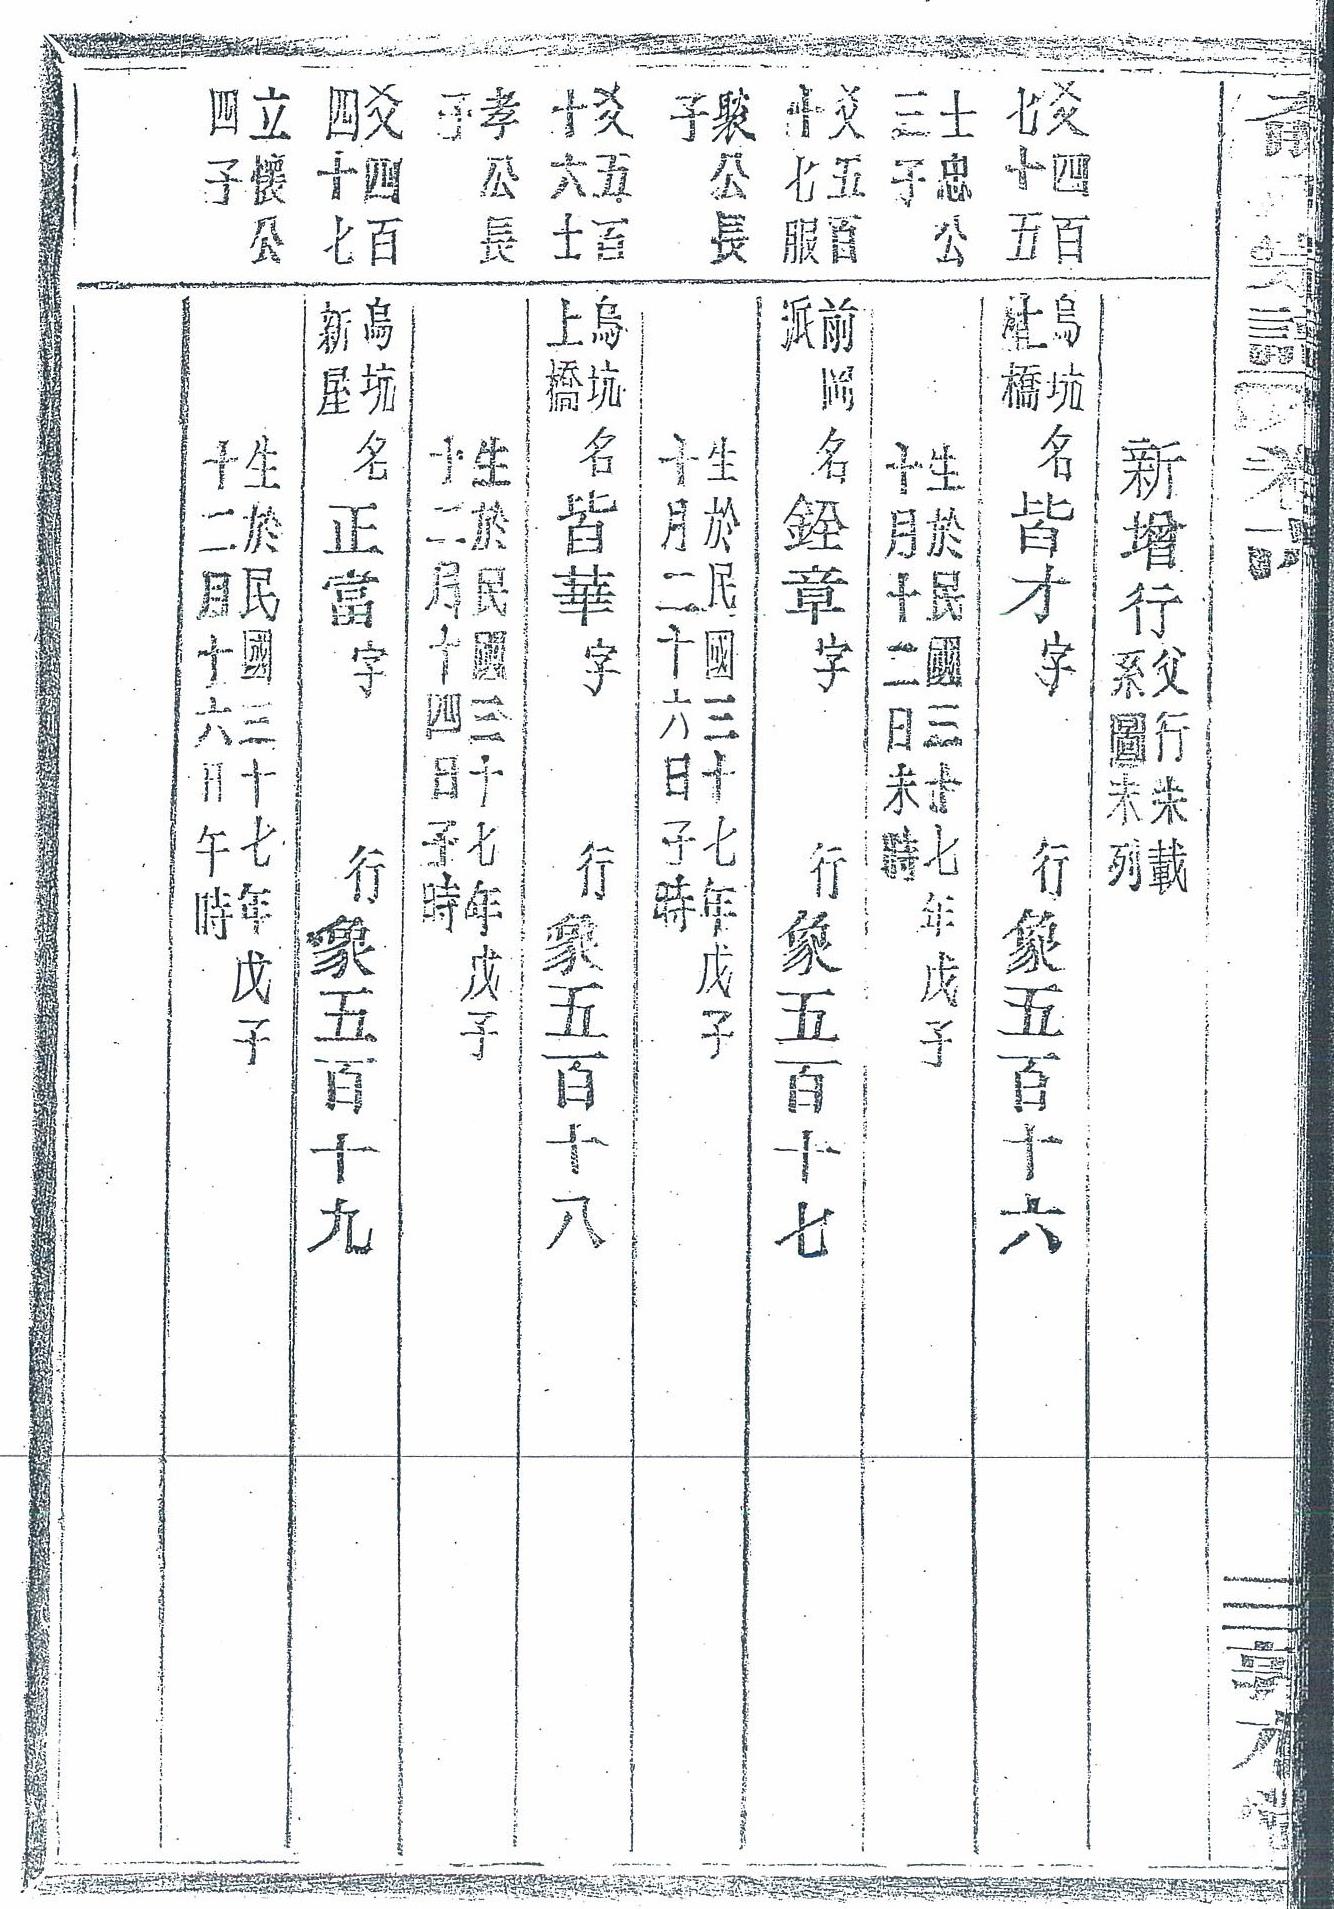 新增行父行未載
系圖未列
爻四百
七十五
烏坑
上橋
名皆才字 行象五百十六
士忠公
三子
生於民國三十七年戊子
十月十二日未時
爻五百
十七服
前岡
派
名銓章字 行象五百十七
聚公長
子
生於民國三十七年戊子
十月二十六日子時
爻五百
十六士
烏坑
上橋
名皆華字 行象五百十八
孝公長
子
生於民國三十七年戊子
十二月十四日子時
爻四百
四十七
烏坑
新屋
名正富字 行象五百十九
立懷公
四子
生於民國三十七年戊子
十二月十六日午時